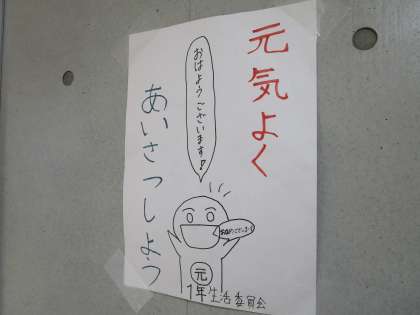 元気よく
おはようございます!
あいさつしよう
元
1年生活委員会